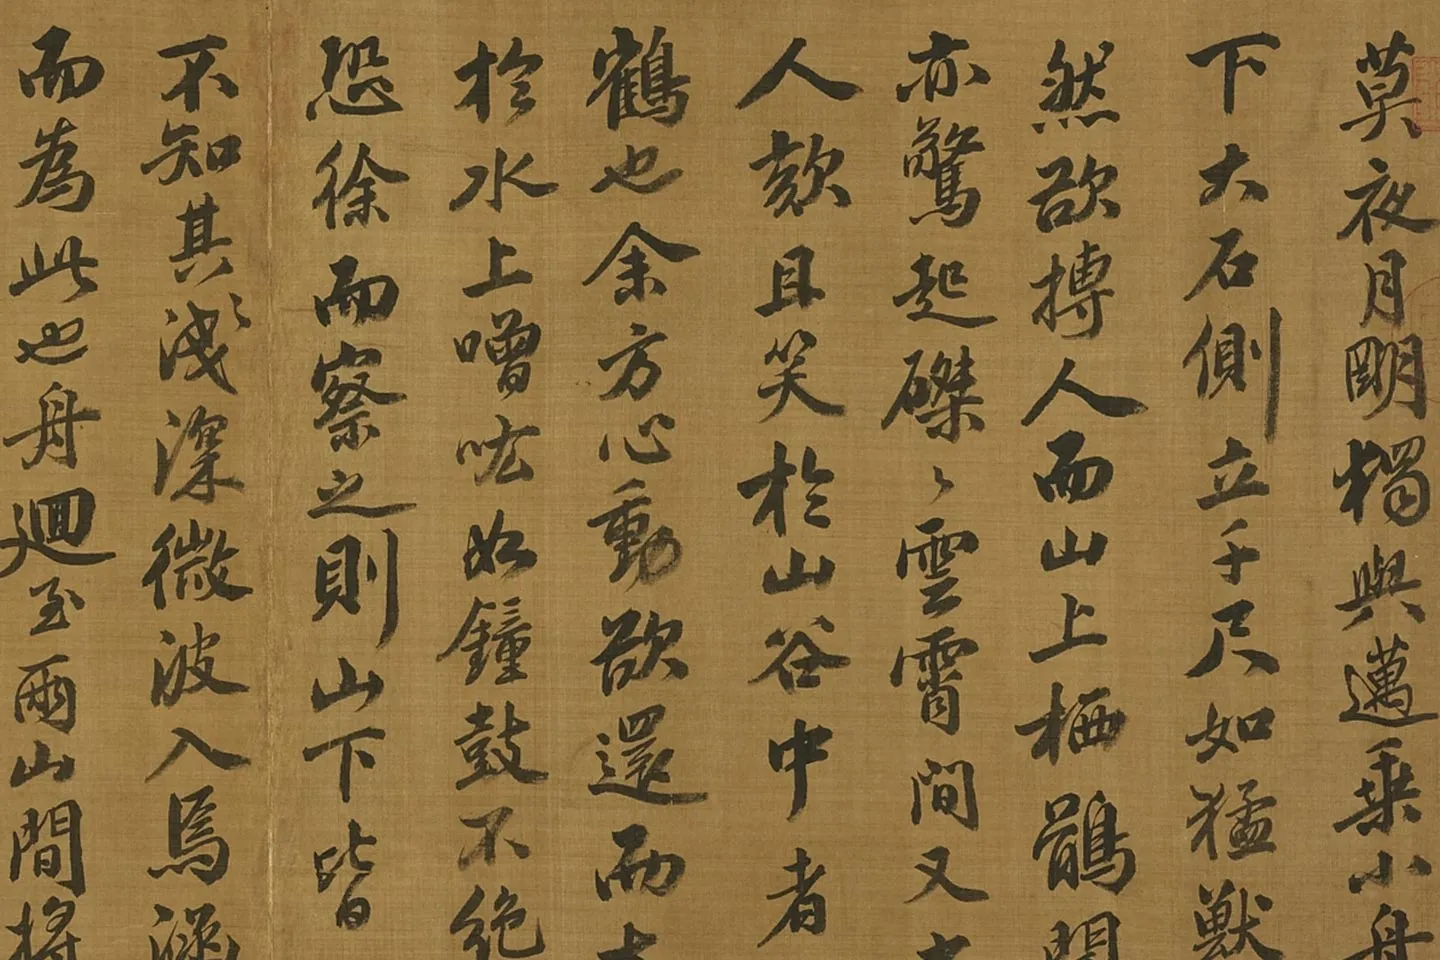 莫夜月明獨與邁乗小舟
下大石側立千尺如猛獸
然欲搏人而山上栖鶻聞
亦驚起磔〻雲霄間又
人欬且笑於山谷中者
鶴也余方心動欲還而大
於水上噌吰如鐘鼓不絶
恐徐而察之則山下皆
不知其淺〻深微波入焉涵
而為此也舟迴至兩山間將